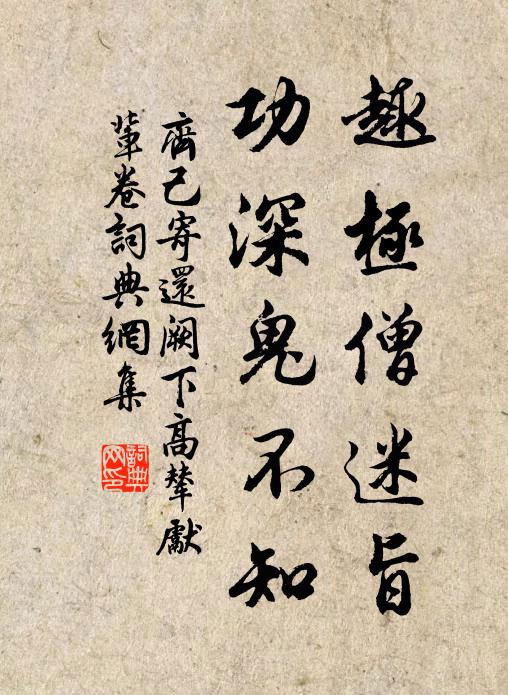 趣極僧迷旨
功深鬼不知
齊己寄還闕下高輦獻
輦卷詞典網集
詞典网印